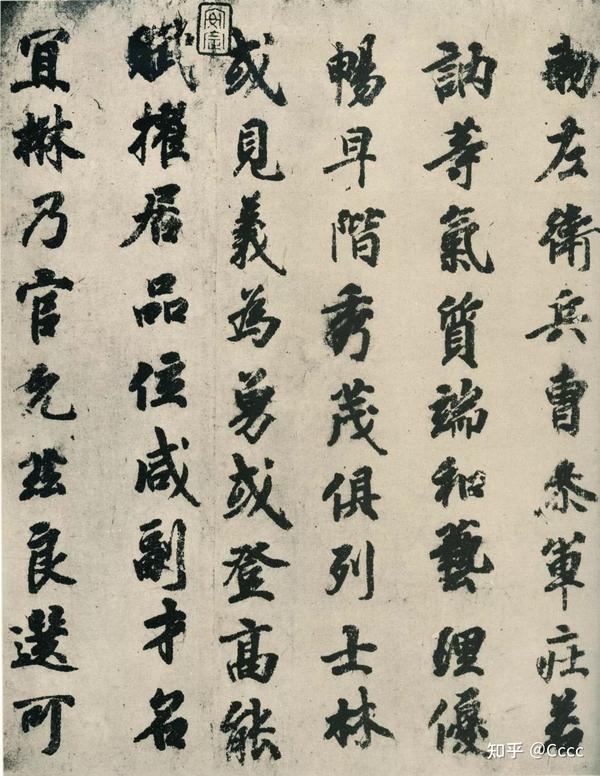 勅左衛兵曹叅軍莊若
訥等氣質端和藝理優
暢早階秀茂俱列士林
或見義為勇或登高能
賦擢居品位咸副才名
宜楙乃官允茲良選可
知乎 @Cccc